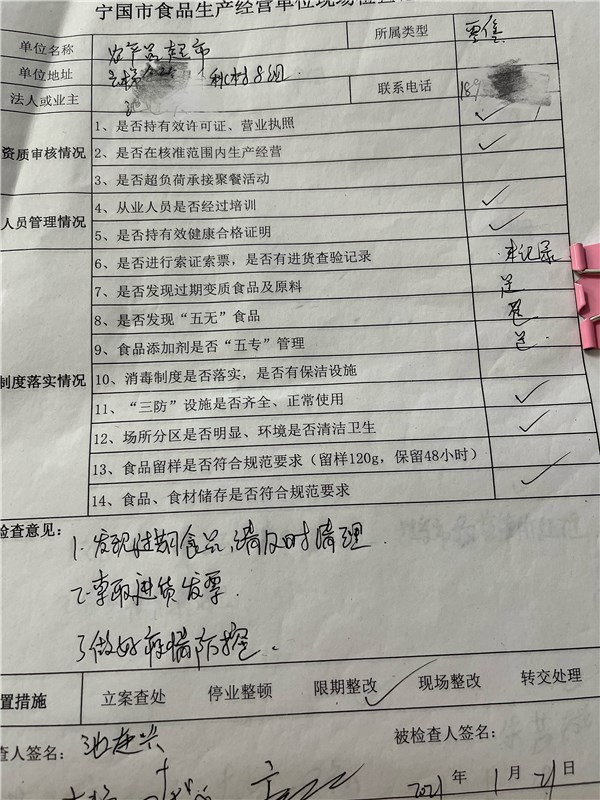 宁国市食品生产经营单位现场检查
单位名称 农产品超市 所属类型 零售
单位地址 村8组
法人或业主 联系电话 189
资质审核情况
1、是否持有效许可证、营业执照 ✓
2、是否在核准范围内生产经营 ✓
3、是否超负荷承接聚餐活动
人员管理情况
4、从业人员是否经过培训 ✓
5、是否持有效健康合格证明 ✓
制度落实情况
6、是否进行索证索票，是否有进货查验记录 未记录
7、是否发现过期变质食品及原料 是
8、是否发现“五无”食品
9、食品添加剂是否“五专”管理
10、消毒制度是否落实，是否有保洁设施
11、“三防”设施是否齐全、正常使用 ✓
12、场所分区是否明显、环境是否清洁卫生 ✓
13、食品留样是否符合规范要求（留样120g，保留48小时）
14、食品、食材储存是否符合规范要求 ✓
检查意见：
1、发现过期食品，请及时清理.
2、索取进货发票.
3、做好疫情防控.
置措施 立案查处 停业整顿 限期整改 ✓ 现场整改 转交处理
查人签名： 被检查人签名：
2021年1月21日